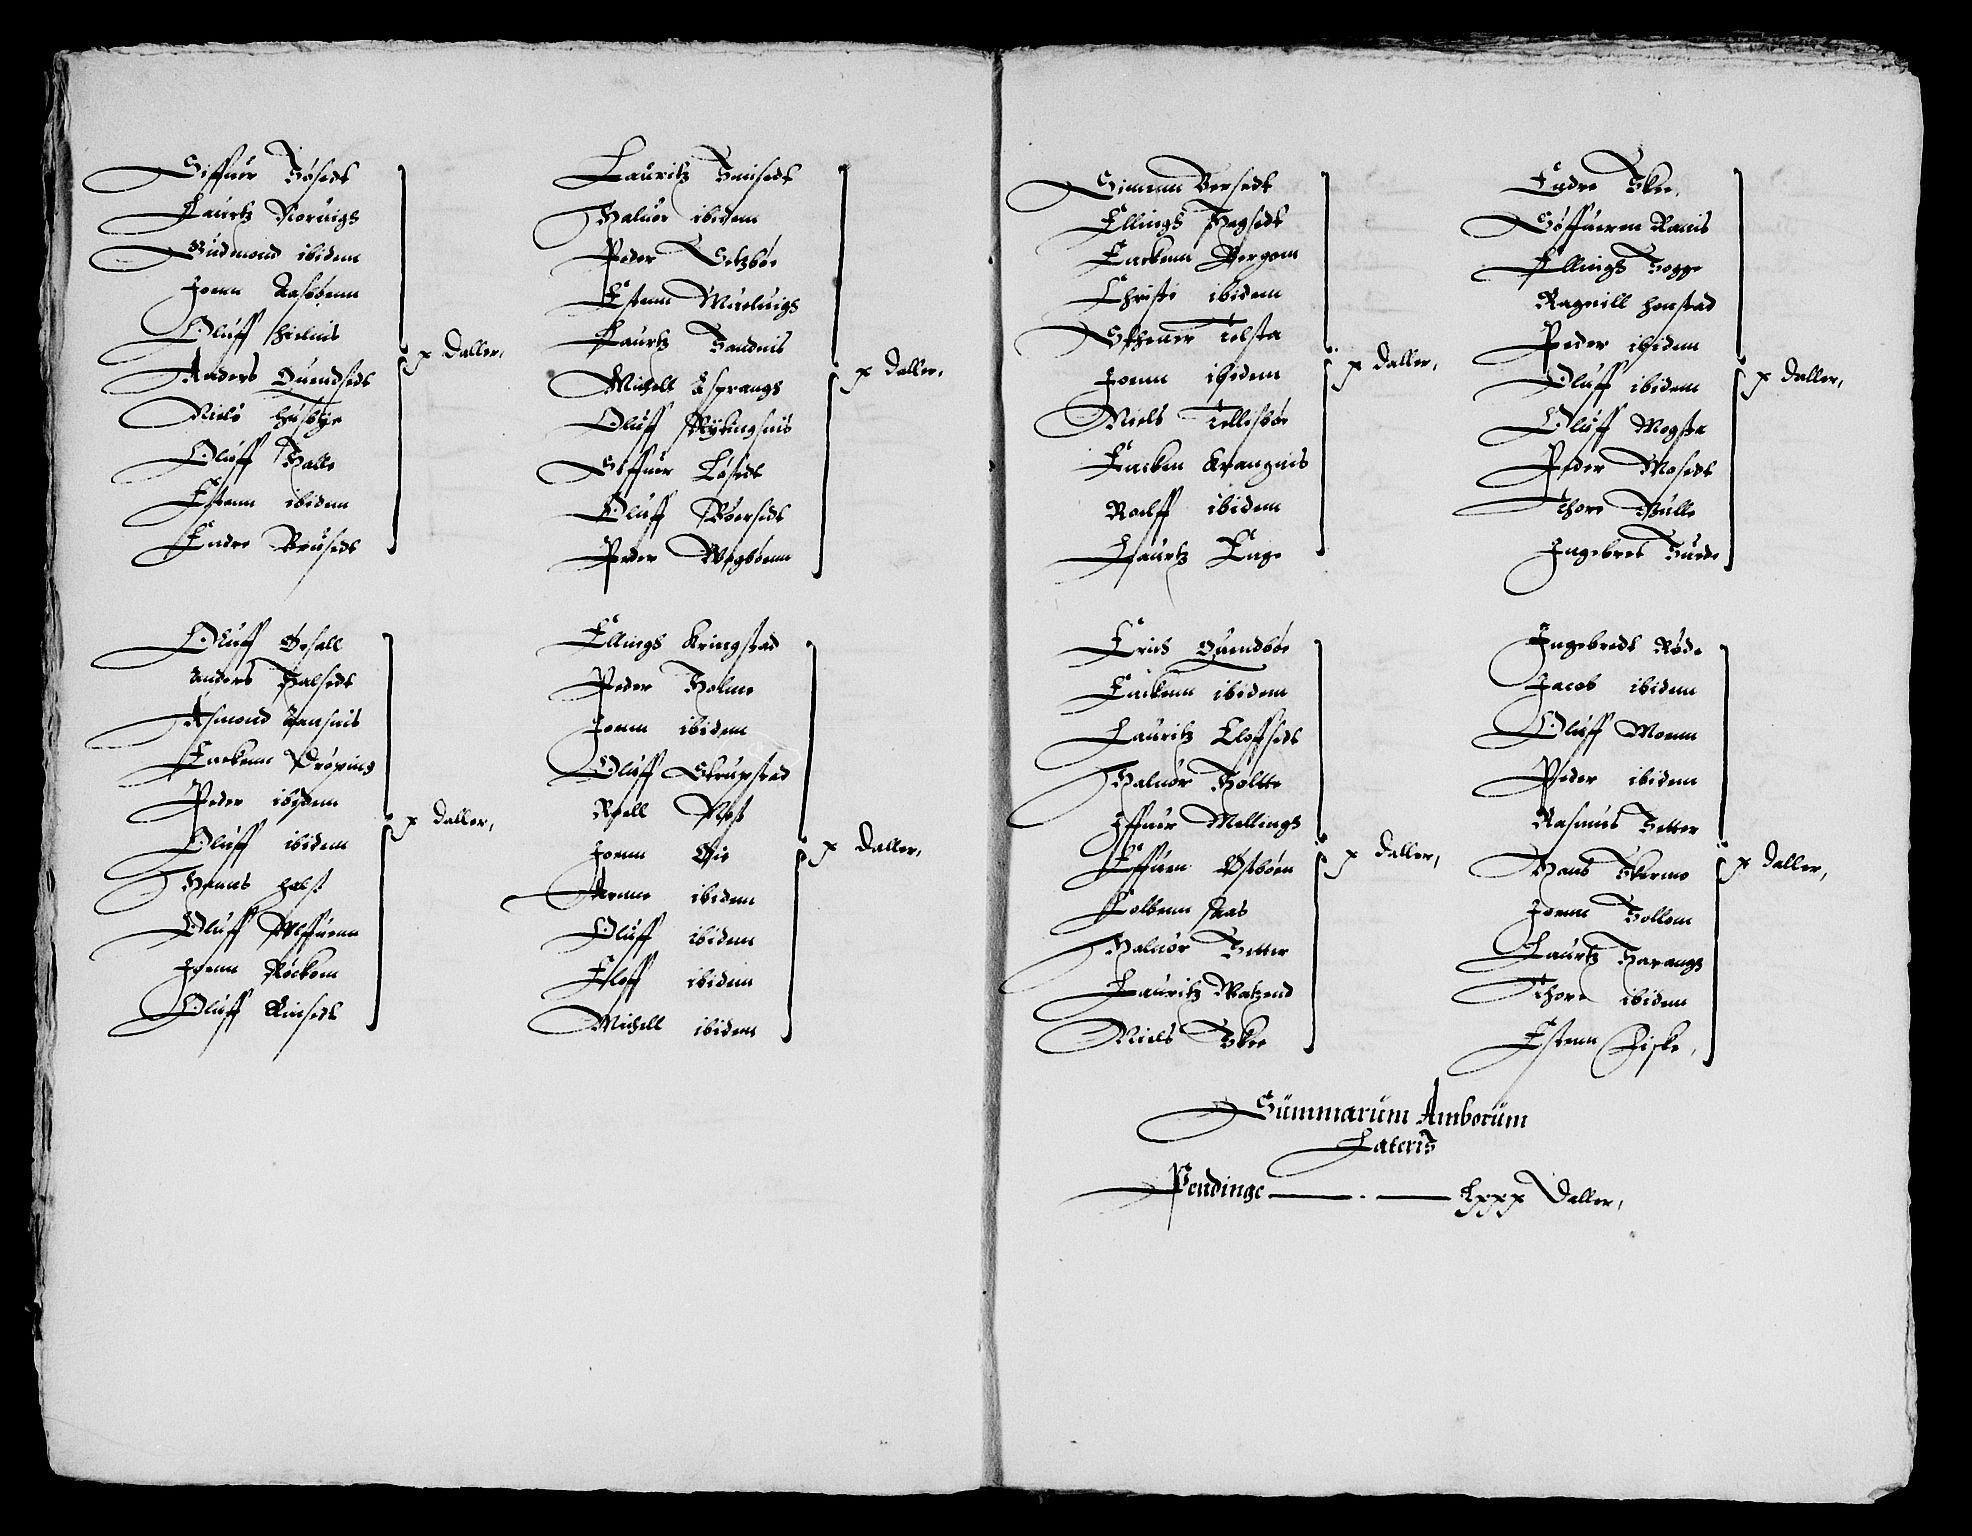 Siffuer Höseds
Laurtz Noruigs
Gudmond ibidem
Joenn Aasbøenn
Oluff Hielnis
Anders Quindseds
Niels Husbye
Oluff Halle
Estenn ibidem
Endre Bruseds
x Daller,
Lauritz Hensedt
Haluor ibidem
Peder Setzbøe
Estenn Mieluigs
Laurtz Sandnis
Michell Esprangs
Oluff Rykingsnis
Siffuer Löseds
Oluff Boerseds
Peder Megböenn
x Daller,
Oluff Orsall
Anders Halsedt
Asmond Hansnis
Enckenn Dröpings
Peder ibidem
Oluff ibidem
Hanns Holst
Oluff Ulffuenn
Joenn Röckem
Oluff Rinsedt
x Daller,
Ellings Kringstad
Peder Holme
Joenn ibidem
Oluff Skrupstad
Roell Nes
Joenn Öie
Arnne ibidem
Oluff ibidem
Eloff ibidem
Michell ibidem
x Daller,
Simenn Bersedt
Ellings Hegsedt
Enckenn Bergom
Christi ibidem
Sthener Tolsta
Joenn ibidem
Niels Tellisböe
Encken Krangnis
Roelff ibidem
Laurtz Enge
x Daller,
Endre Skee,
Söffueren Ranis
Ellings Hogge
Ragnill Honstad
Peder ibidem
Oluff ibidem
Oluff Megsta
Peder Moseds
Thore Mülle
Ingebret Hurde
x Daller,
Erich Quindböe
Enckenn ibidem
Lauritz Eloffseds
Haluor Holtte
Iffuer Mellings
Effuen Östböen
Colbenn Aas
Haluor Setter
Lauritz Watzend
Niels Skee
x Daller,
Ingebredt Röde
Jacob ibidem
Oluff Moenn
Peder ibidem
Rasmus Setter
Hans Skermo
Joenn Sollem
Laurtz Harangs
Thore ibidem
Estenn Fiske,
x Daller,
Summarum Amborum
Lateris
Pendinge — . — Lxxx Daller,